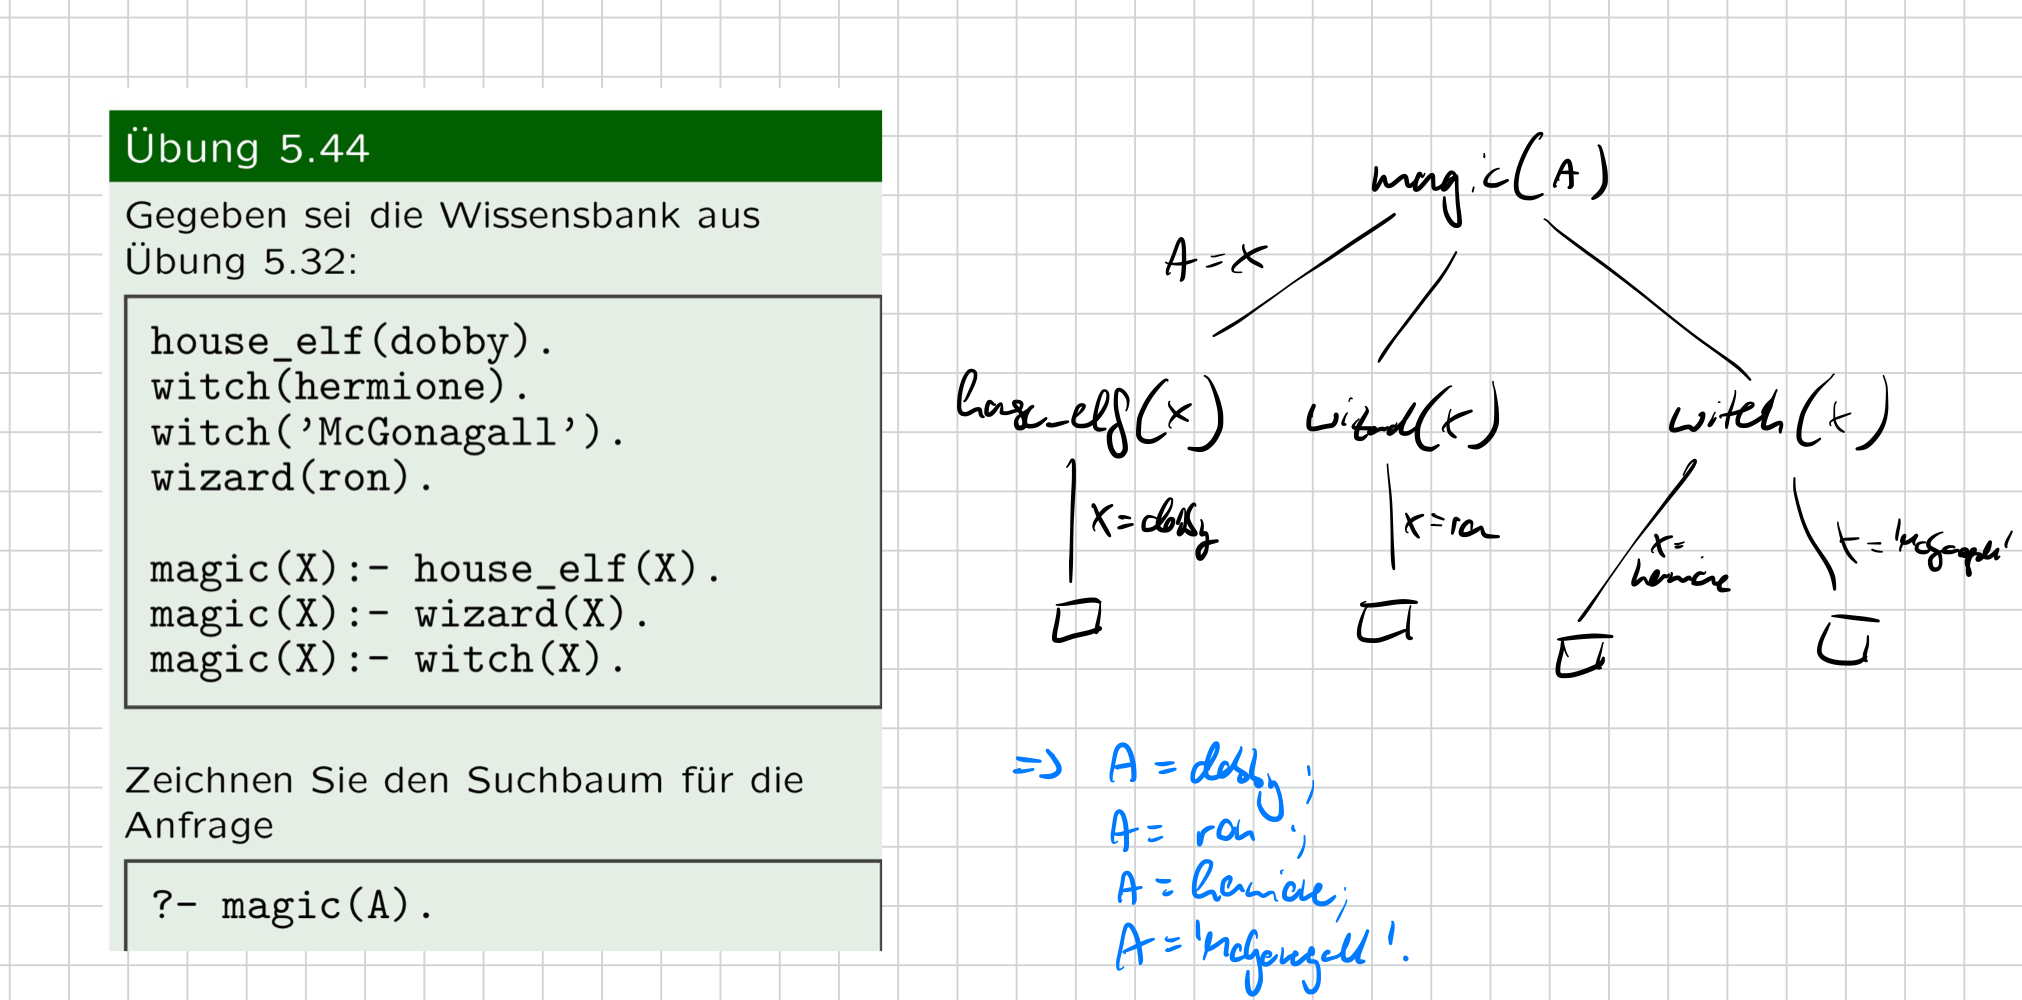 Übung 5.44
Gegeben sei die Wissensbank aus
Übung 5.32:
house_elf(dobby).
witch(hermione).
witch('McGonagall').
wizard(ron).
magic(X):- house_elf(X).
magic(X):- wizard(X).
magic(X):- witch(X).
Zeichnen Sie den Suchbaum für die
Anfrage
?- magic(A).
magic(A)
A = X
house_elf(X) wizard(X) witch(X)
X = dobby X = ron X = hermione X = 'McGonagall'
=> A = dobby ;
A = ron ;
A = hermione ;
A = 'McGonagall'.